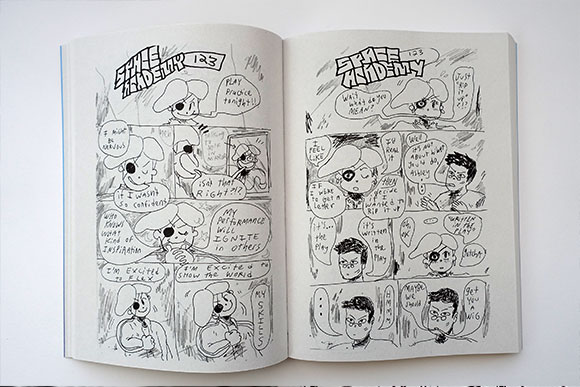 SPACE
ACADEMY 123
PLAY
Practice
tonight!!
I might
BE
NERVOUS
if I wasn't
so confident
isn't that
RigHT?!?
WHO
KNOWS
WHAT
kind of
INSPIRATION
MY
PERFORMANCE
WILL
IGNITE
in others
I'M EXCITED
I'M EXCITED TO
SHOW THE WORLD
MY
SKILLS
SPACE 123
ACADEMY
Wait
what do you
MEAN?
Just
RIP
it
UP
I
FEEL
LIKE
if I
READ
it
IF I
WANT
to get a
I
decide
I
wanted to
RIP it up
WELL
it's NOT
ABOUT WHAT
YOU'D DO,
it's...
the
PLAY
It's
WRITTEN
in the
PLAY
WRITTEN
IN THE
Gotcha
...
HMM
...
MAYBE
WE
SHOULD
get
YOU
A
WIG